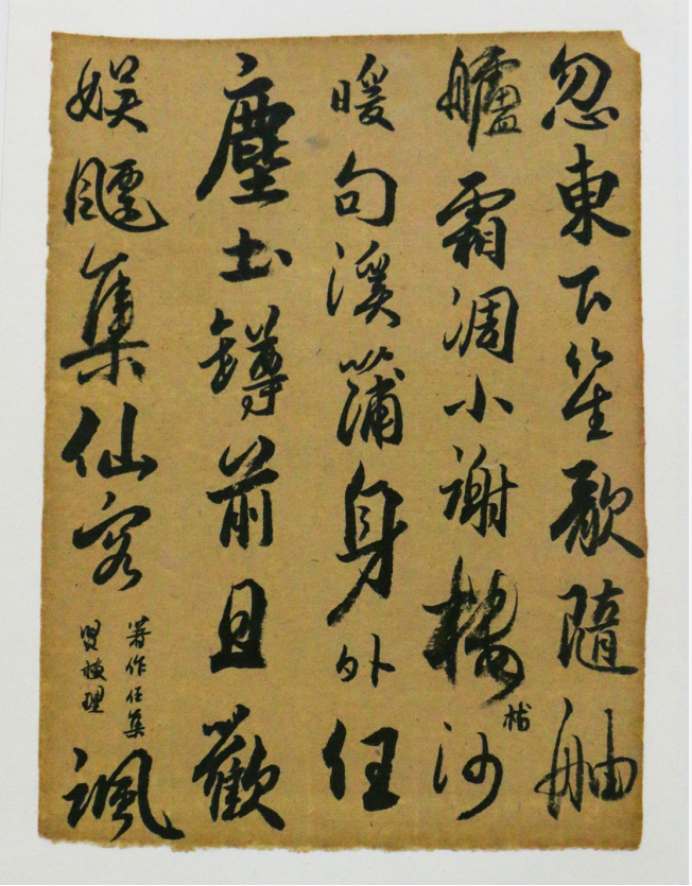 忽東下笙歌隨舳
艫霜凋小謝沙
暖句溪蒲身外任
塵土罇前且歡
娛飄集仙客
著作任集
賢校理
諷